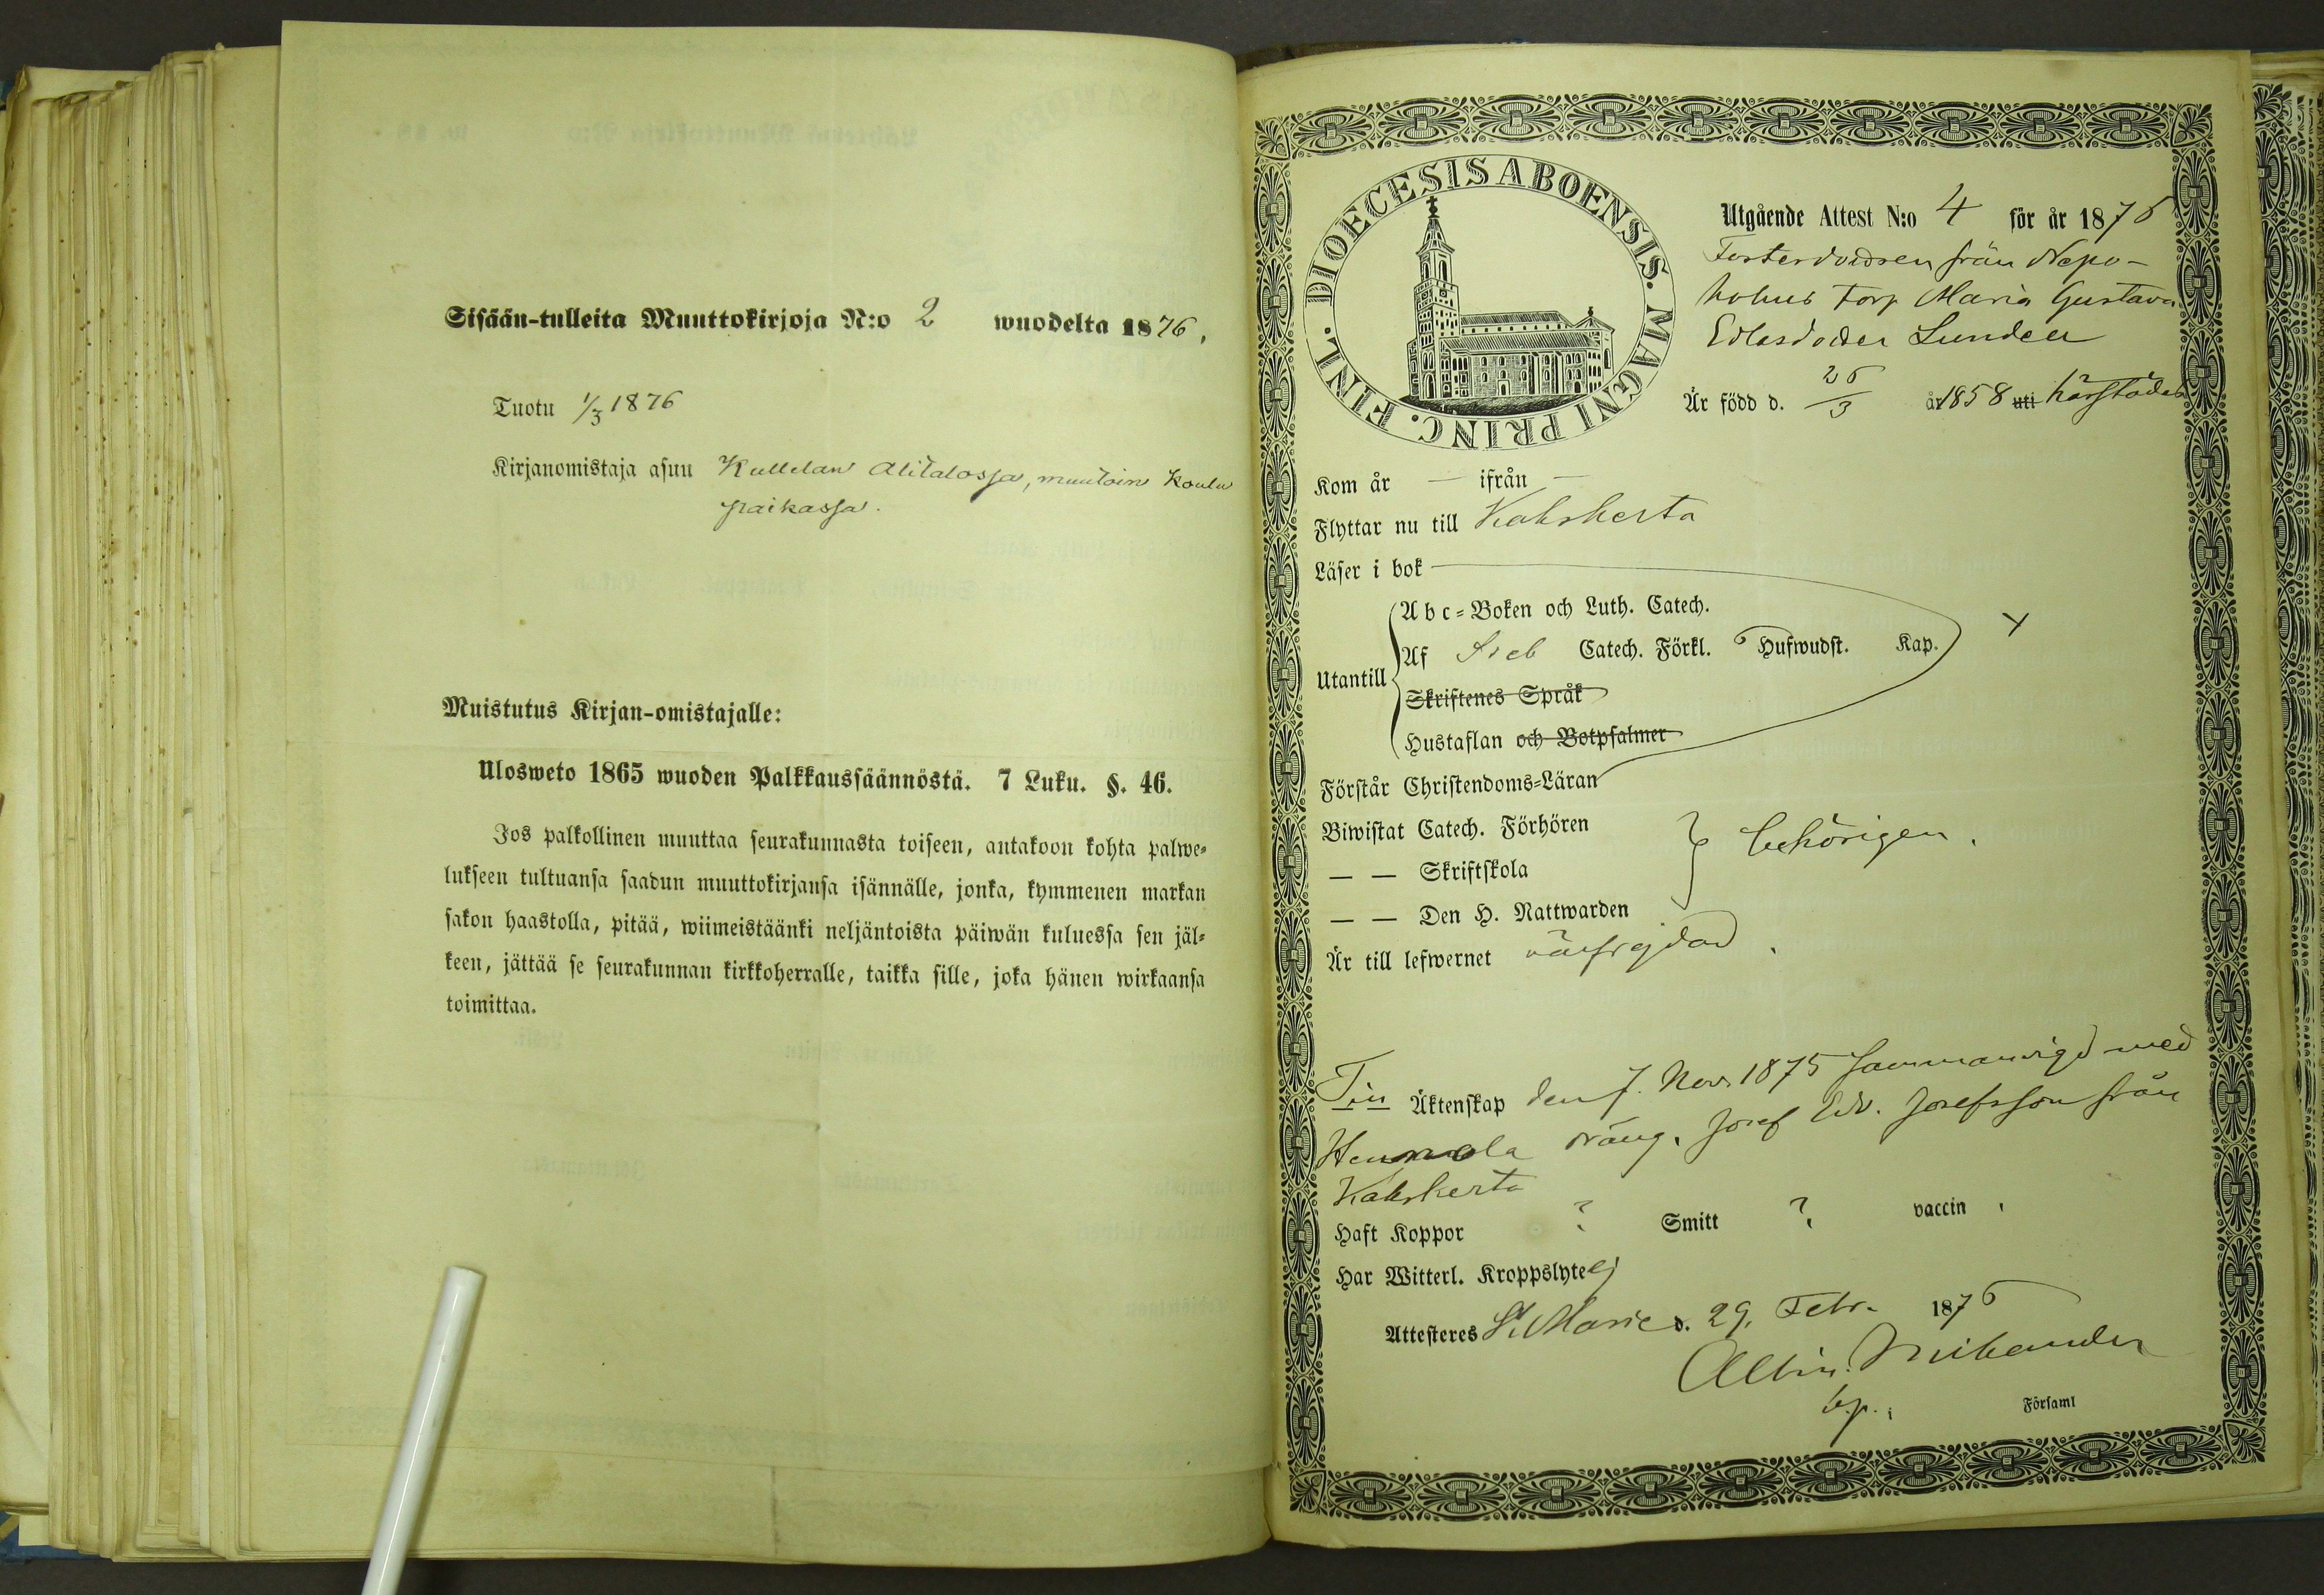 Sisään-tulleita Muuttokirjoja N:o 2 wuodelta 1876.
Tuotu 1/3 1876
Kirjanomistaja asuu Kullelan Alitalossa, muutoin Koulu
paikassa.
Muistutus Kirjan-omistajalle:
Ulosweto 1865 wuoden Palkkaussäännöstä. 7 Luku. §. 46.
Jos palkollinen muuttaa seurakunnasta toiseen, antakoon kohta palwe-
lukseen tultuansa saadun muuttokirjansa isännälle, jonka, kymmenen markan
sakon haastolla, pitää, wiimeistäänki neljäntoista päiwän kuluessa sen jäl-
keen, jättää se seurakunnan kirkkoherralle, taikka sille, joka hänen wirkaansa
toimittaa.
DIOECESIS ABOENSIS. MAGNI PRINC. FINL.
Utgående Attest N:o 4 för år 1876
från
torp Maria Gustava
Lundeen
Är född d. 26/3 år 1858 uti härstädes
Kom år — ifrån —
Flyttar nu till Kakskerta
Läser i bok
Abc-Boken och Luth. Catech.
Utantill Af Sveb Catech. Förkl. Hufwudst. Kap.
Skriftenes Språk
Hustaflan och Botpsalmer
Förstår Christendoms-Läran
Biwistat Catech. Förhören
— — Skriftskola behörigen.
— — Den H. Nattwarden
Är till lefwernet välfrejdad.
Till Äktenskap den 7. Nov. 1875 Sammanvigd med
dräng. Josef Edv. Josefsson från
Kakskerta
Haft Koppor ? Smitt ? vaccin
Har Witterl. Kroppslyte ej
Attesteres St. Marie d. 29. Febr. 1876
Albin
i Församl